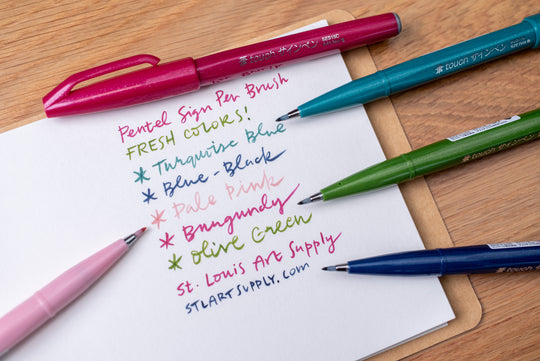 touch サインペン SES15C
touch サインペン
touch サインペン
touch
Pentel Sign Pen Brush
FRESH COLORS!
* Turquoise Blue
* Blue-Black
* Pale Pink
* Burgundy
* Olive Green
St. Louis Art Supply
STLARTSUPPLY.COM